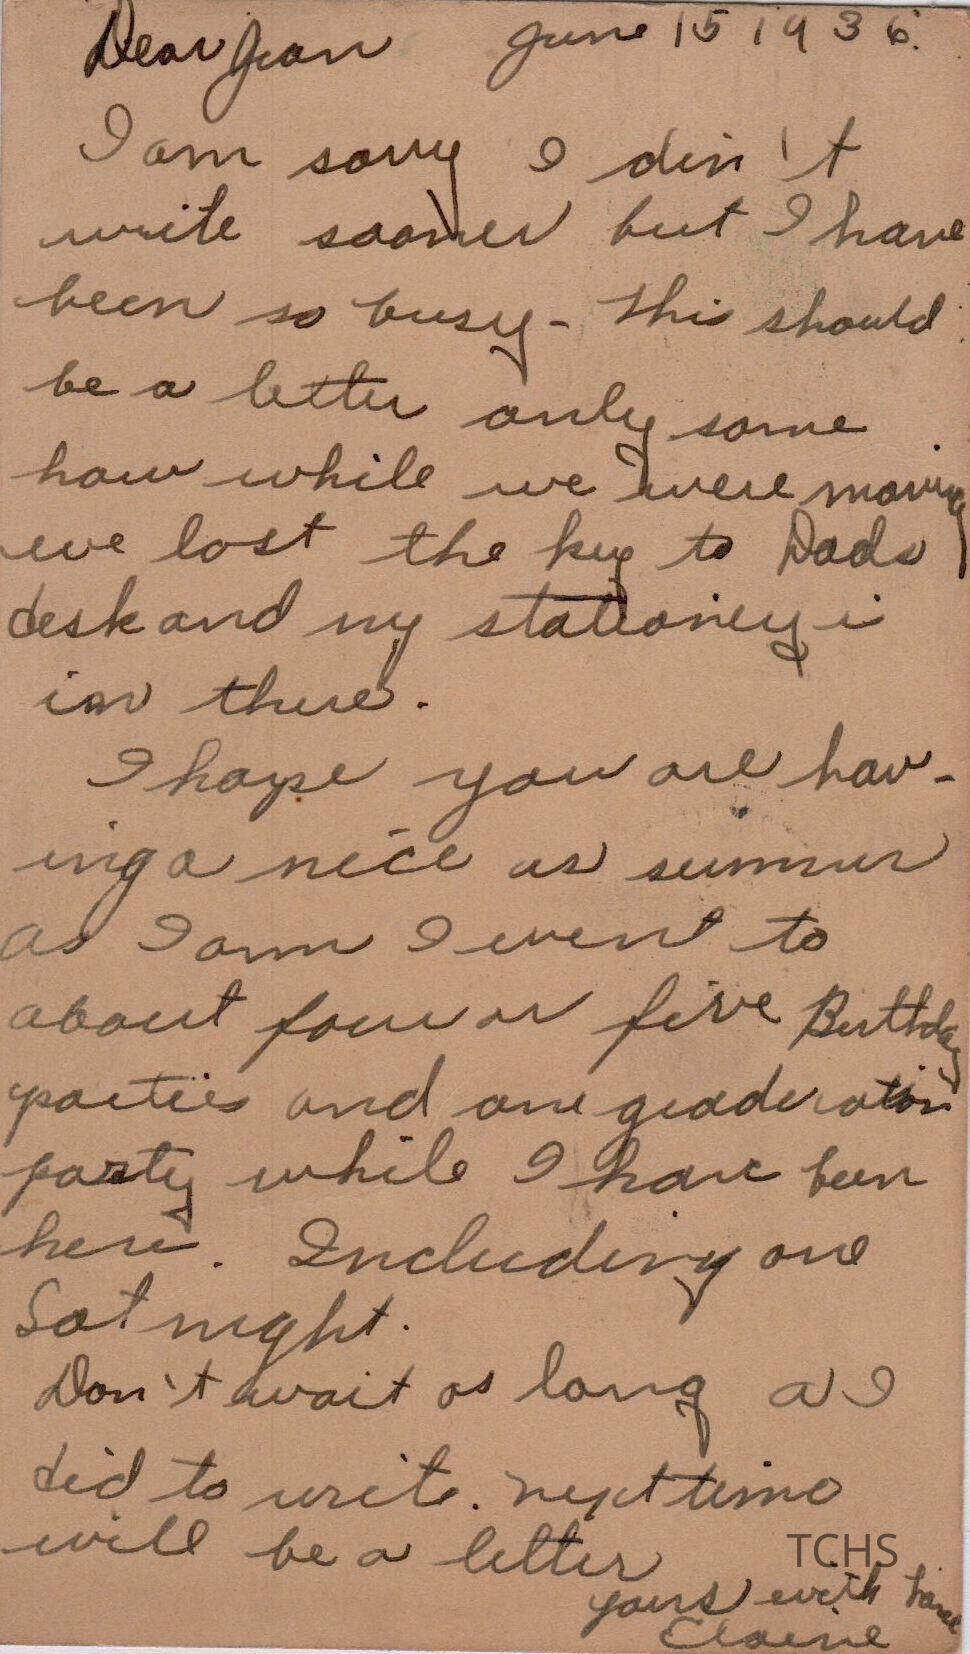 Dear Jean June 15 1936.
I am sorry I din't
write sooner but I have
been so busy - This should
be a letter only some
how while we were moving
we lost the key to Dads
desk and my stationey i
in there.
I hope you are hav-
ing a nice as summer
as I am I went to
about four or five Birthday
parties and one graduation
party while I have been
here. Including one
Sat night.
Don't wait as long as I
did to write. next time
will be a letter
TCHS
yours with love
Elaine